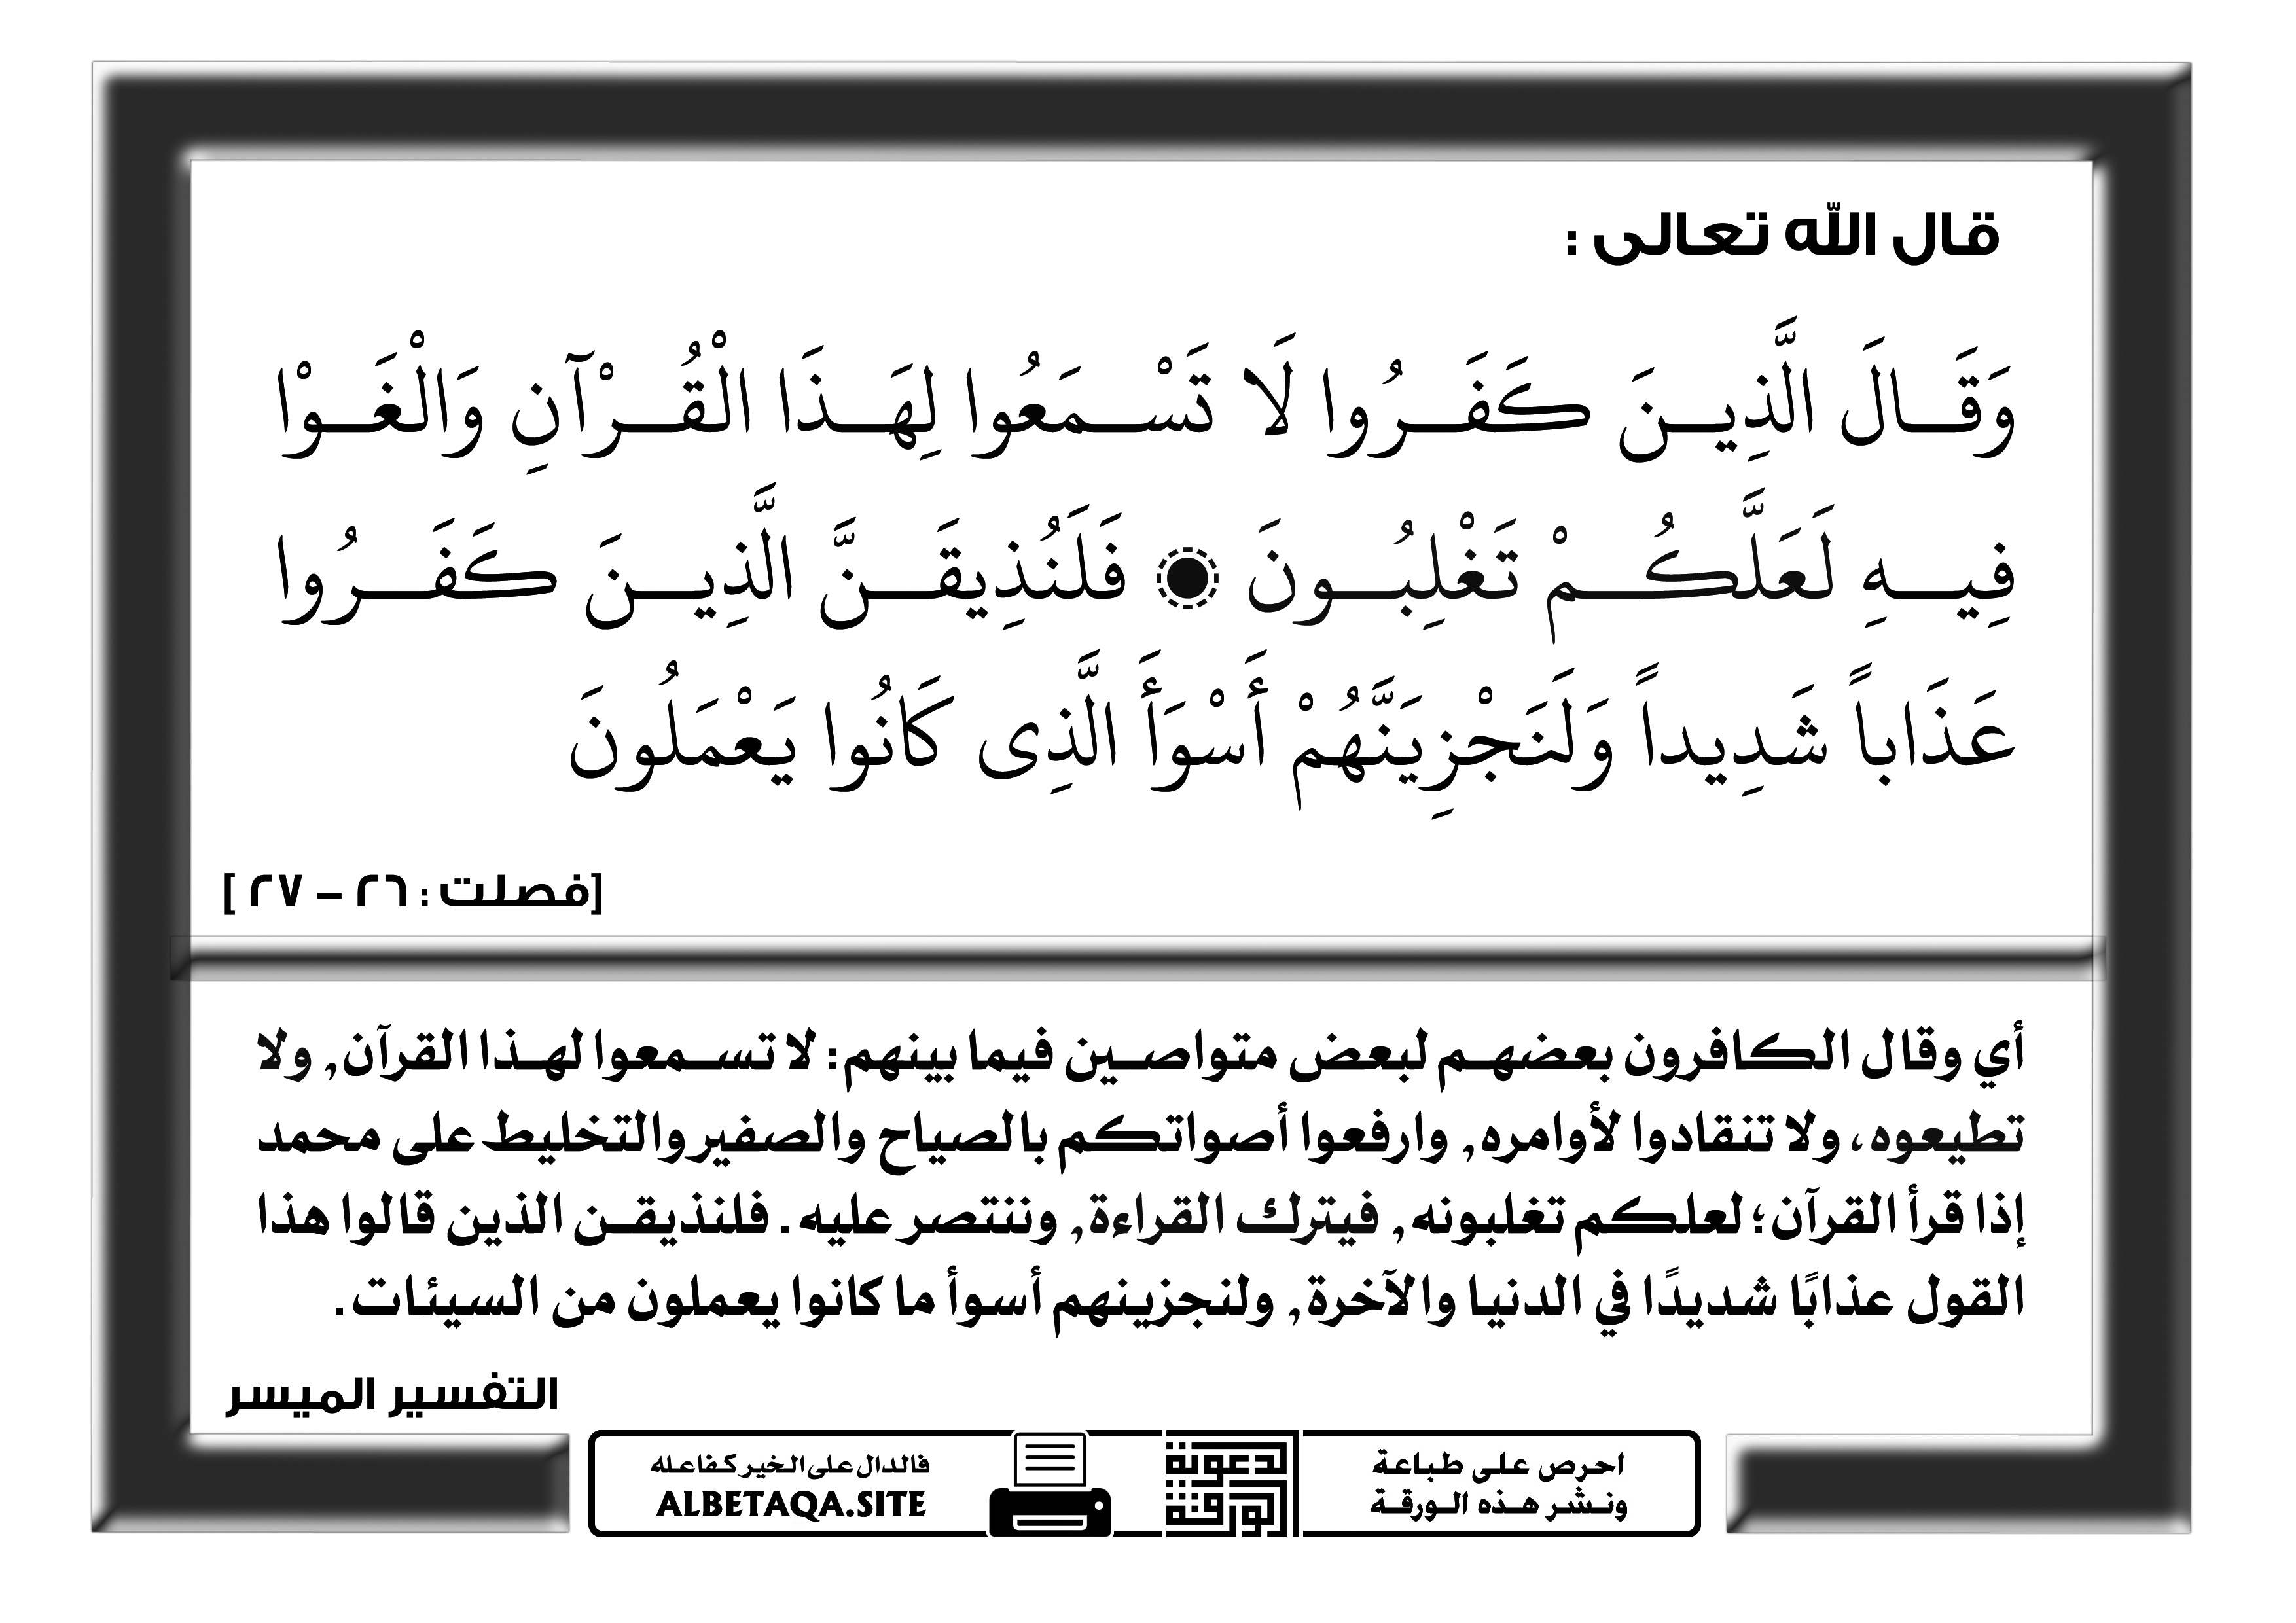 قال الله تعالى :
وَقَـالَ الَّذِيـنَ كَـفَـرُوا لَا تَسْـمَعُوا لِهَـذَا الْقُـرْآنِ وَالْغَـوْا
فِيـهِ لَعَلَّكُـمْ تَغْلِبُـونَ ۝ فَلَنُذِيقَـنَّ الَّذِيـنَ كَـفَـرُوا
عَذَاباً شَدِيداً وَلَنَجْزِيَنَّهُمْ أَسْوَأَ الَّذِى كَانُوا يَعْمَلُونَ
[فصلت : ٢٦ – ٢٧ ]
أي وقال الكافرون بعضهـم لبعض متواصـين فيما بينهم: لا تسـمعوا لهـذا القرآن, ولا
تطيعوه، ولا تنقادوا لأوامره, وارفعوا أصواتكم بالصياح والصفير والتخليط على محمد
إذا قرأ القرآن؛ لعلكم تغلبونه, فيترك القراءة, وننتصر عليه. فلنذيقـن الذين قالوا هذا
القول عذابًا شديدًا في الدنيا والآخرة, ولنجزينهم أسوأ ما كانوا يعملون من السيئات.
التفسير الميسر
احرص على طباعة
ونـشـر هـذه الـورقـة
الدعوية
الورقة
فالدال على الخير كفاعله
ALBETAQA.SITE